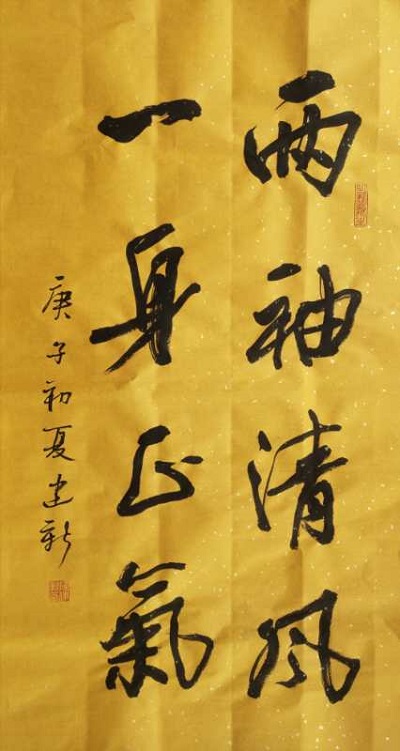 兩袖清風
一身正氣
庚子初夏建新